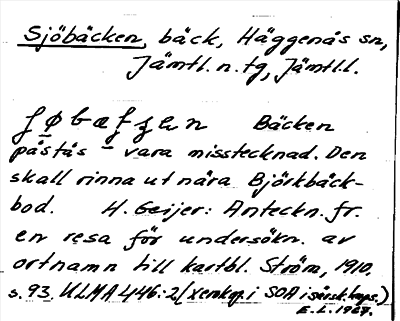 Sjöbäcken, bäck, Häggenås sn,
Jämtl. n. tg, Jämtl. l.
Bäcken
påstås vara misstecknad. Den
skall rinna ut nära Björkbäck-
bod. H. Geijer: Anteckn. fr.
en resa för undersökn. av
ortnamn till kartbl. Ström, 1910.
s. 93. ULMA 446:2 (xerokop. i SOA i särsk. kaps.)
E.L. 1967.